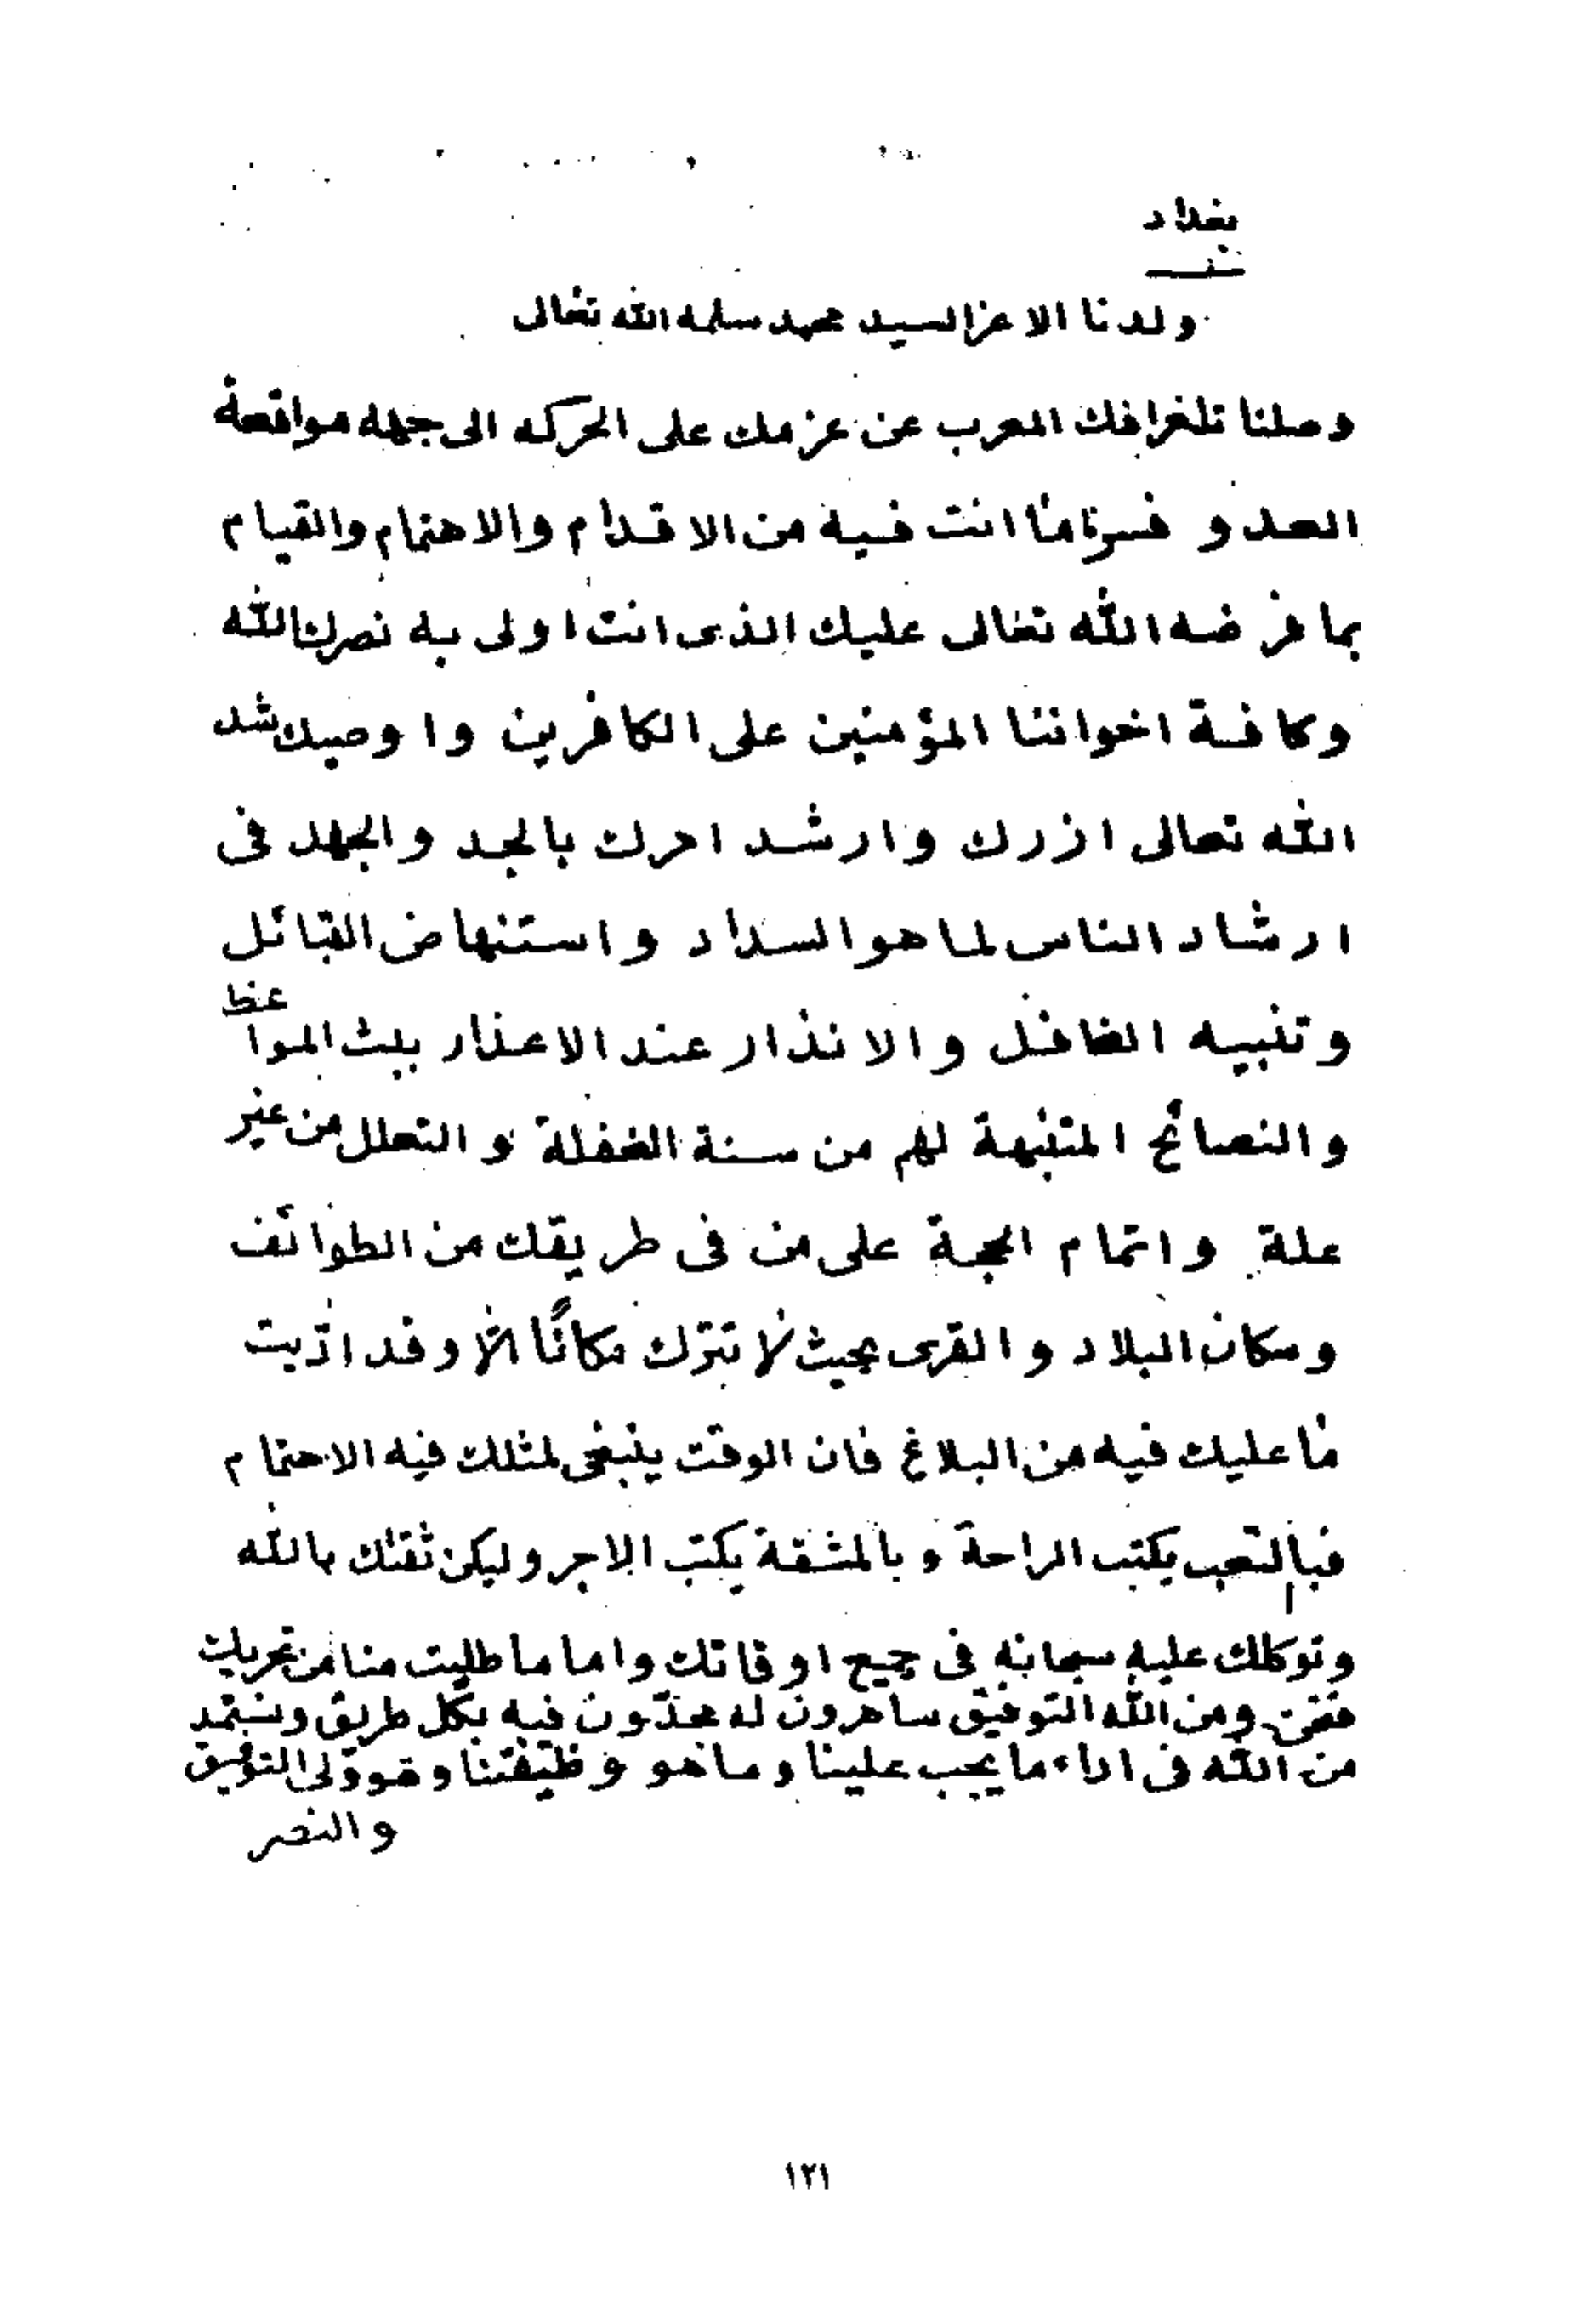 بغداد
ولدنا الاعز السيد محمد سلمه الله تعالى
وصلنا تلغرافك المعرب عن عزمك على الحركه الى جهه مواقعة
العدو فسرنا ما انت فيه من الاقدام والاهتمام والقيام
بما فرضه الله تعالى عليك الذى انت اولى به نصرك الله
وكافة اخواننا المؤمنين على الكافرين واوصيك شد
الله تعالى ازرك وارشد امرك بالجد والجهد فى
ارشاد الناس لما هو السداد واستنهاض القبائل
وتنبيه الغافل والانذار عند الاعذار ببث المواعظ
والنصائح المتنبهة لهم من سنة الغفلة والتعلل من غير
علة واتمام الحجة على من فى طريقك من الطوائف
وسكان البلاد والقرى بحيث لا تترك مكانًا الا وقد ادّيت
ما عليك فيه من البلاغ فان الوقت ينبغى لمثلك فيه الاهتمام
فبالتعب يكتب الراحة وبالمشقة يكتب الاجر وليكن ثقتك بالله
وتوكلك عليه سبحانه فى جميع اوقاتك واما ما طلبت منا من تحريك
فنحن ومن الله التوفيق ساهرون له مجدّون فيه بكل طريق ونستمد
من الله فى اداء ما يجب علينا وما هو وظيفتنا وهو ولى التوفيق
والنصر
١٢١